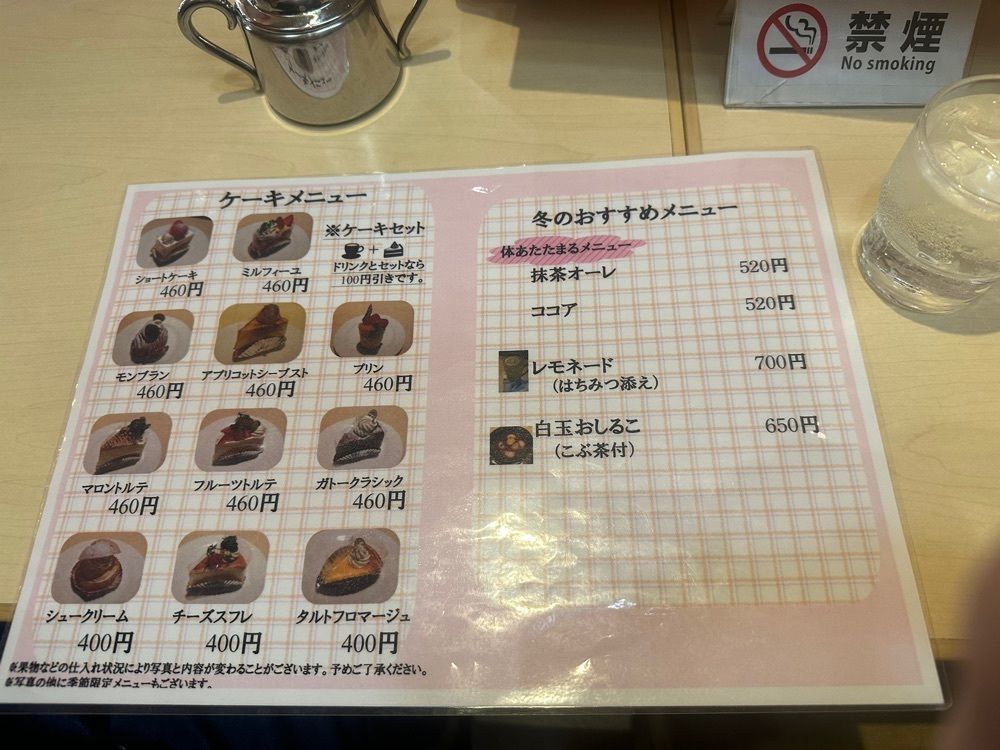 禁煙
No smoking
ケーキメニュー
ショートケーキ
460円
ミルフィーユ
460円
※ケーキセット
+
ドリンクとセットなら
100円引きです。
モンブラン
460円
アプリコットシーブスト
460円
プリン
460円
マロントルテ
460円
フルーツトルテ
460円
ガトークラシック
460円
シュークリーム
400円
チーズスフレ
400円
タルトフロマージュ
400円
※果物などの仕入れ状況により写真と内容が変わることがございます。予めご了承ください。
※写真の他に季節限定メニューもございます。
冬のおすすめメニュー
体あたたまるメニュー
抹茶オーレ 520円
ココア 520円
レモネード 700円
(はちみつ添え)
白玉おしるこ 650円
(こぶ茶付)